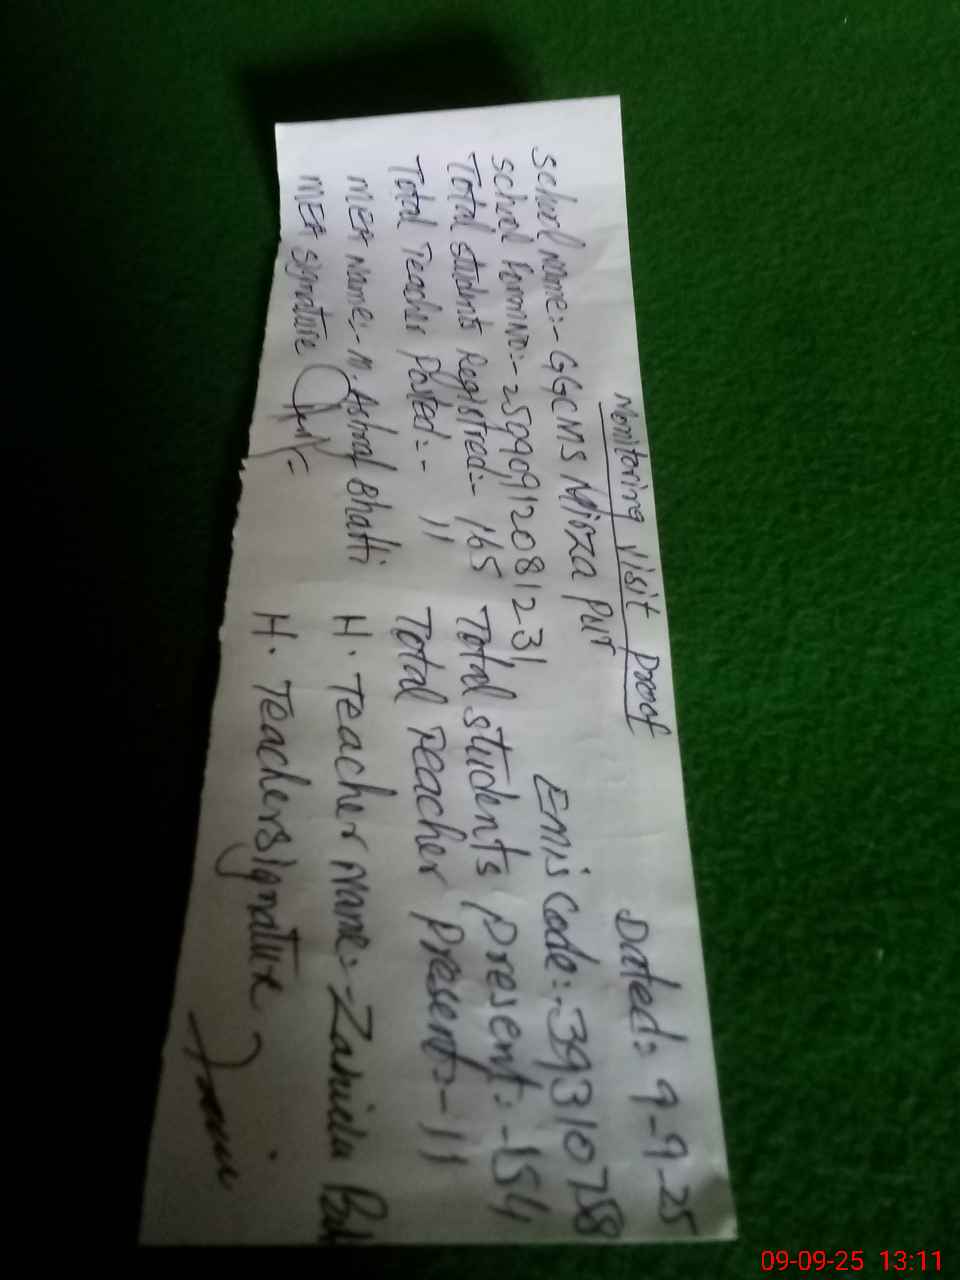 Monitoring visit proof Dated: 9-9-25
School Name:- GGCMS Mirza Pur Emis Code:- 39310758
School Form No:- 25090912081231
Total students Registred:- 165 Total students present:- 154
Total Teacher Posted:- 11 Total Teacher Present:- 11
MEA Name:- M. Ashraf Bhatti H. Teacher Name:-
MEA Signature H. Teacher signature
09-09-25 13:11